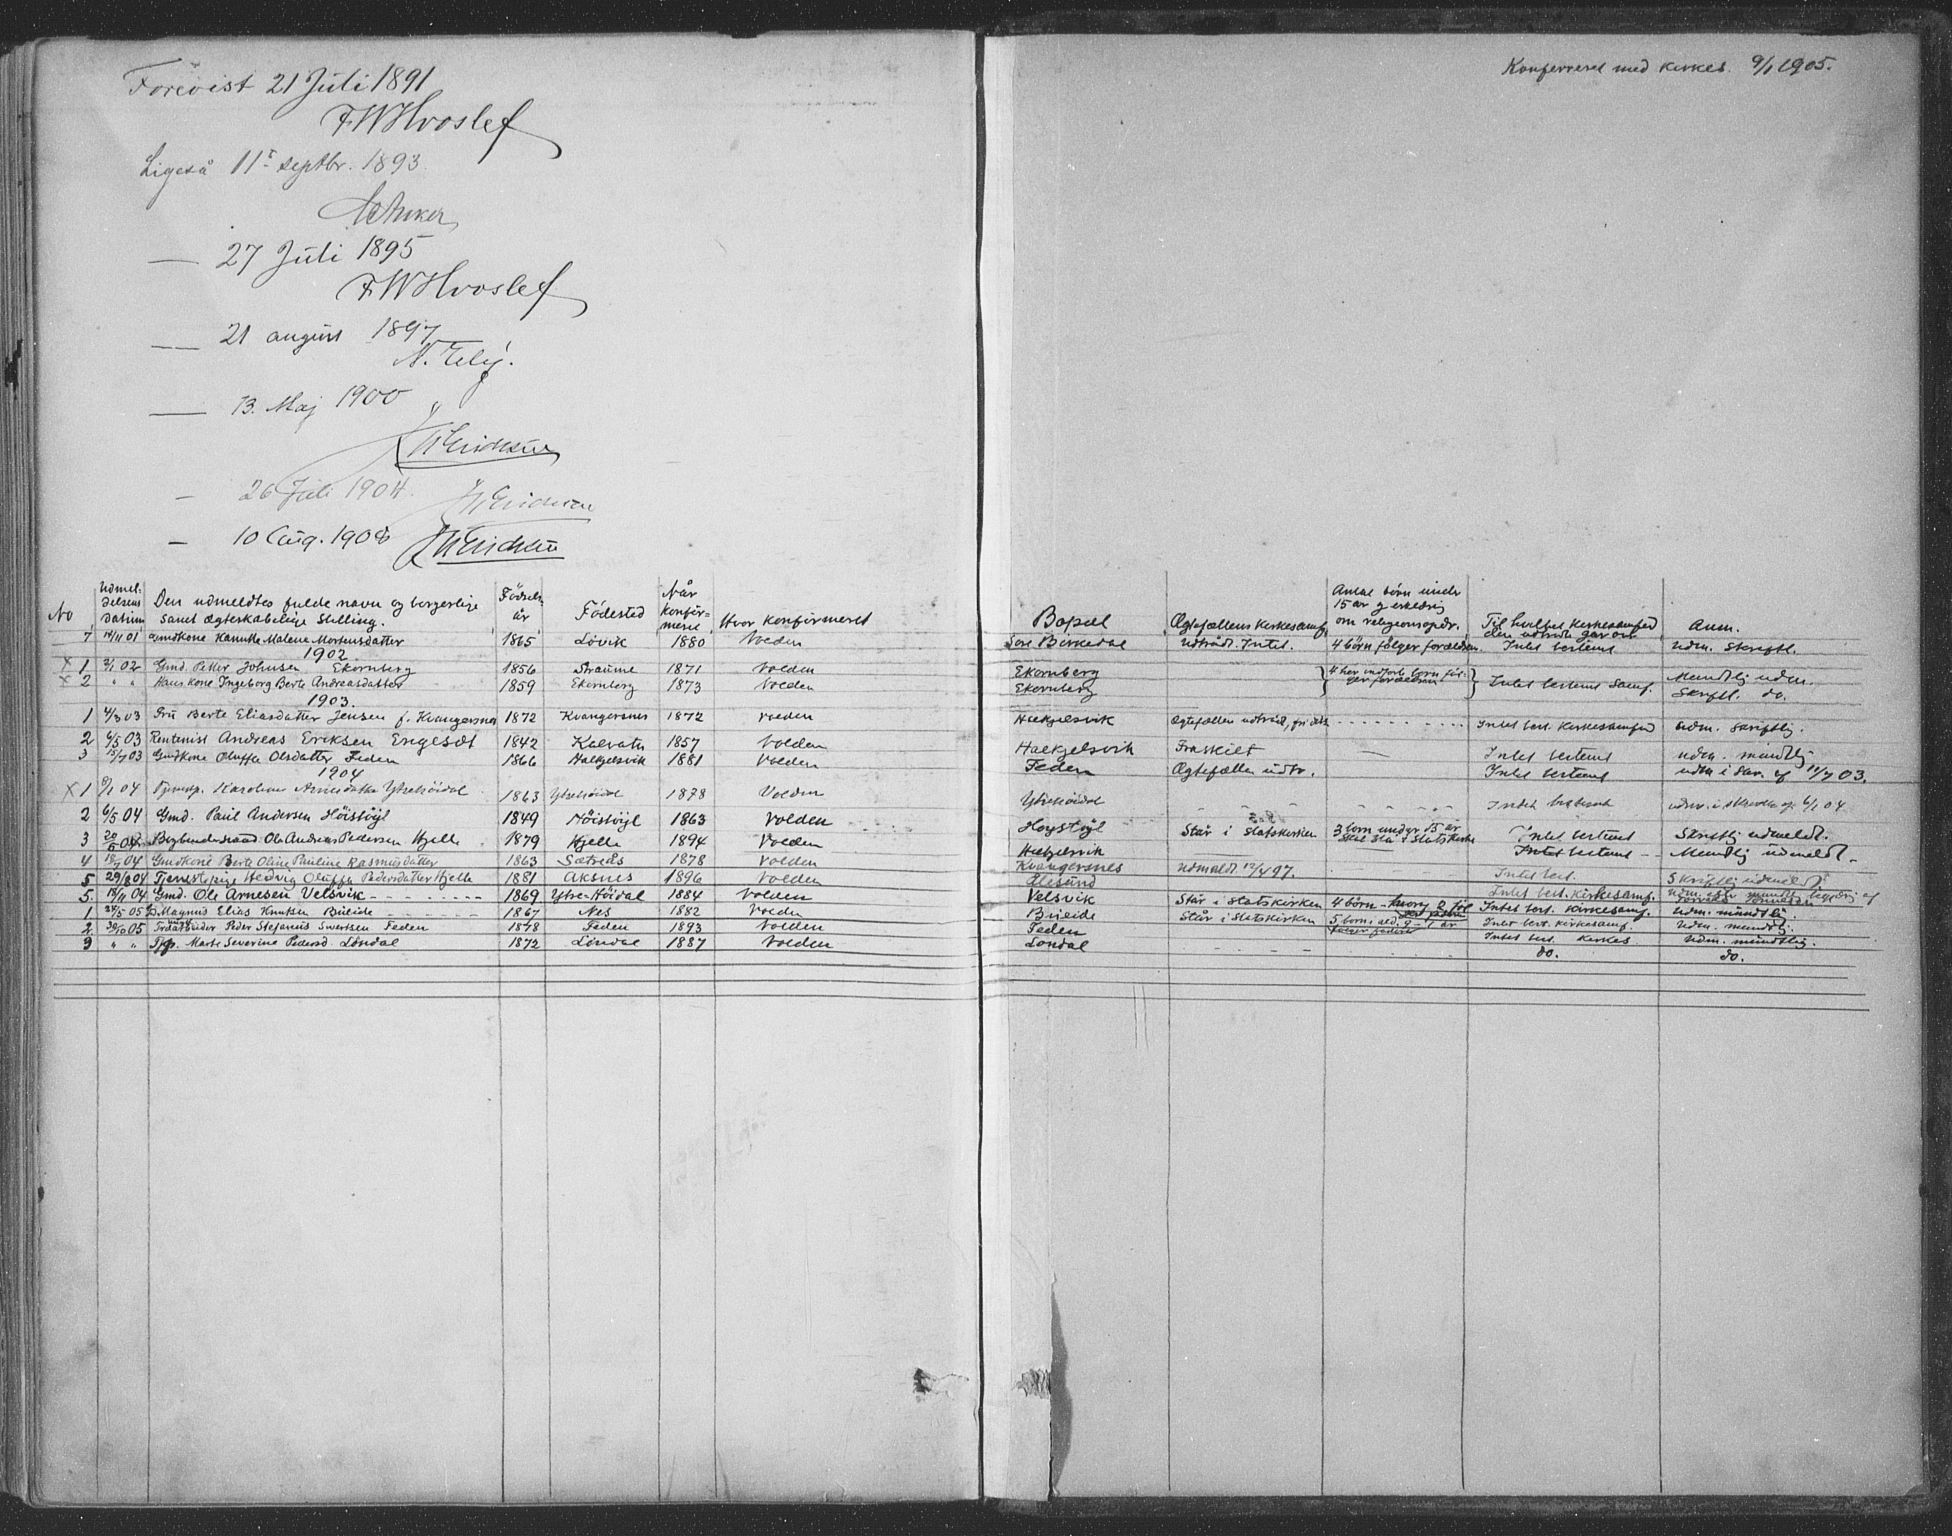 Forevist 21 Juli 1891
FW Hvoslef
Ligeså 11 septbr. 1893
— 27 Juli 1895
FW Hvoslef
— 21 august 1897
— 13. Maj 1900
Erichsen
- 26 Juli 1904
Erichsen
- 10 Aug. 1908
Erichsen
Konfereret med kirkes. 9/1 1905.
No Udmeldelsens Datum Den udmeldtes fulde navn og borgerlige samt ægteskabelige Stilling. Födselsår Födested Når konfirmeret Hvor konfirmeret Bopæl Ægtefællens Kirkesamf. Antal börn under 15 år og erklæring om religionsopdr. Til hvilket Kirkesamfund den udtrædte går over Anm.
7 14/11 01 Gmdkone Malene Mortensdatter 1865 Lövik 1880 Volden Birkedal Udtrådt. Intet. 4 börn fölger forældren Intet bestemt Udm. Skriftl.
1902
x 1 2/1 02 Gmd. Petter Johnsen Ekornberg 1856 Straume 1871 Volden Ekornberg Mundtlig udm.
x 2 " " Hans Kone Ingeborg Berte Andreasdatter 1859 Ekornberg 1873 Volden Ekornberg Intet bestemt Samf. Skriftl. do.
1903.
1 4/3 03 Fru Berte Eliasdatter Jensen f. Kvangersnes 1872 Kvangersnes 1872 Volden Hækjelsvik Ægtefællen udtrådt, Intet best. Kirkesamfund Udm. Skriftlig.
2 6/5 03 Rentenist Andreas Eriksen Engeset 1842 Kalvatn 1857 Volden Hækjelsvik Fraskilt — Intet bestemt udm. mundtlig
3 15/7 03 Gmdkone Oluffa Olsdatter Feden 1866 Hækjelsvik 1881 Volden Feden Ægtefællen udtr. Intet bestemt udm i Skr. af 11/7 03.
1904
x 1 6/1 04 Karoline Ytrehöidal 1863 Ytrehöidal 1878 Volden Ytrehöidal Intet bestemt 6/1 04
2 6/5 04 Gmd. Paul Andersen Höistöyl 1849 Höistöyl 1863 Volden Höystöyl Står i Statskirken 3 börn under 15 år skal stå i Statskirke Intet bestemt Skriftlig udmeldt.
3 Ole Andreas Pedersen Hjelle 1879 Hjelle 1894 Volden Hækjelsvik Intet bestemt -- Mundtlig udmeldt.
4 18/7 04 Gmdkone Berte Oline Pauline Rasmusdatter 1863 Sætreås 1878 Volden Kvangersnes Udmeldt 12/4 97. Intet best. Skriftlig udmeldt
5 29/8 04 Tjenestepige Hedvig Oluffa Pedersdatter Hjelle 1881 Aksnes 1896 Volden Ålesund Intet best. Kirkesamf.
5. 18/11 04 Gmd. Ole Arnesen Velsvik 1869 Ytre-Höidal 1884 Volden Velsvik Står i Statskirken 4 börn - Intet best. Kirkesamf. Udm. mundtlig
1 24/5 05 Magnus Elias Knutsen Bueide 1867 Nes 1882 Volden Bueide Står i Statskirken 5 börn Intet best. Kirkesamf. Udm. mundtlig.
2 30/10 05 Peder Stefanus Sivertsen Feden 1878 Feden 1893 Volden Feden Intet best. Kirkes. Udm. mundtlig.
3 " " Tjp. Marte Severine Pedersd Löndal 1872 Löndal 1887 Volden Löndal do. do.